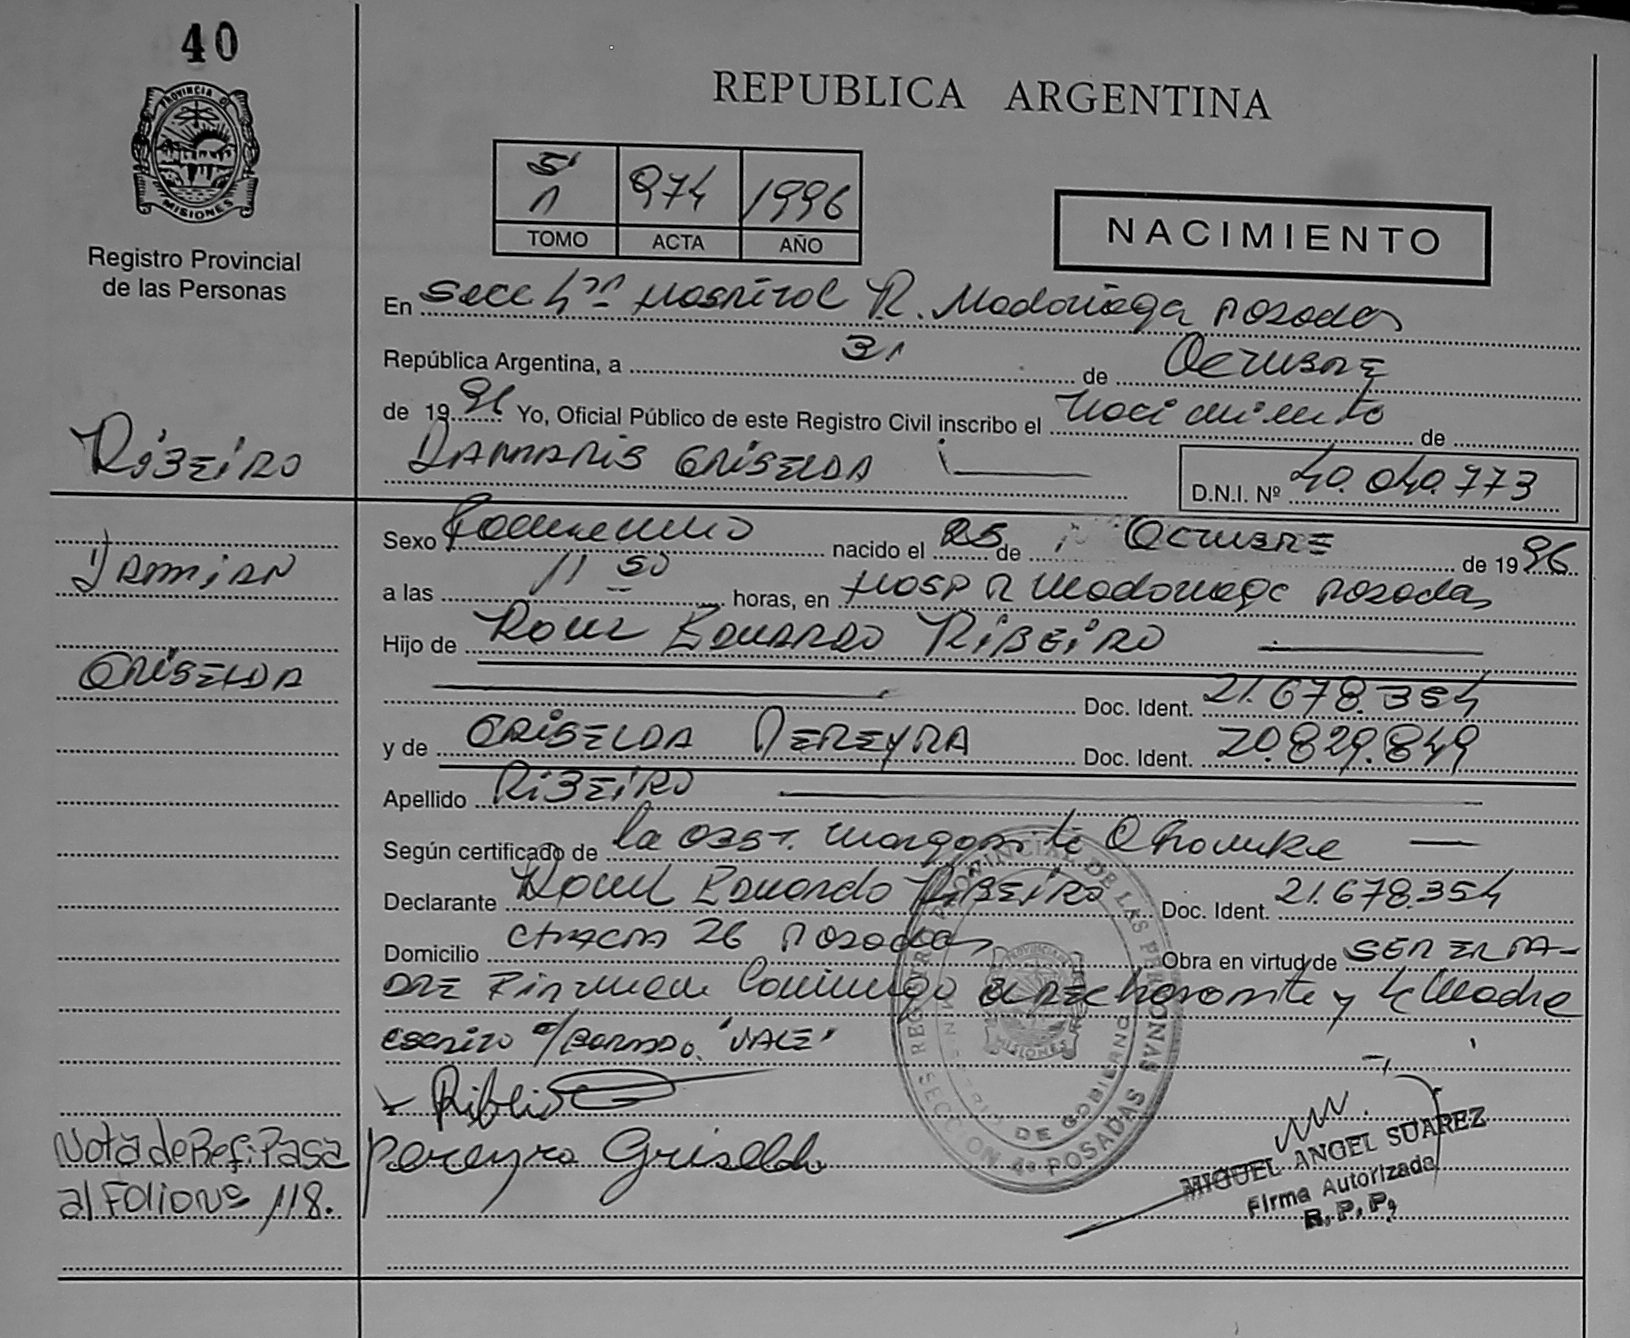 40
PROVINCIA DE
MISIONES
Registro Provincial
de las Personas
REPUBLICA ARGENTINA
5' 1 974 1996
TOMO ACTA AÑO
NACIMIENTO
En Secc 4ta Hospital R. Madariaga Posadas
República Argentina, a 31 de Octubre
de 1996 Yo, Oficial Público de este Registro Civil inscribo el Nacimiento de
RIBEIRO
DAMARIS GRISELDA
D.N.I. Nº 40.040.773
Sexo Femenino nacido el 25 de Octubre de 1996
DAMIAN
a las 11 50 horas, en Hosp R Madariaga Posadas
Hijo de Raul Eduardo RIBEIRO
GRISELDA
Doc. Ident. 21.678.354
y de GRISELDA PEREYRA Doc. Ident. 20.829.849
Apellido RIBEIRO
Según certificado de la Obst. Margarita
Declarante Raul Eduardo RIBEIRO Doc. Ident. 21.678.354
Domicilio CHACRA 26 Posadas Obra en virtud de SER EL PA-
DRE Firman Conmigo el declarante y la Madre
escrito s/borrado "VALE"
Pereyra Griselda
Nota de Ref: Pasa
al Folio Nº 118.
REGISTRO PROVINCIAL DE LAS PERSONAS
MINISTERIO DE GOBIERNO
SECCION 4ª POSADAS
MISIONES
MIGUEL ANGEL SUAREZ
Firma Autorizada
R. P. P.